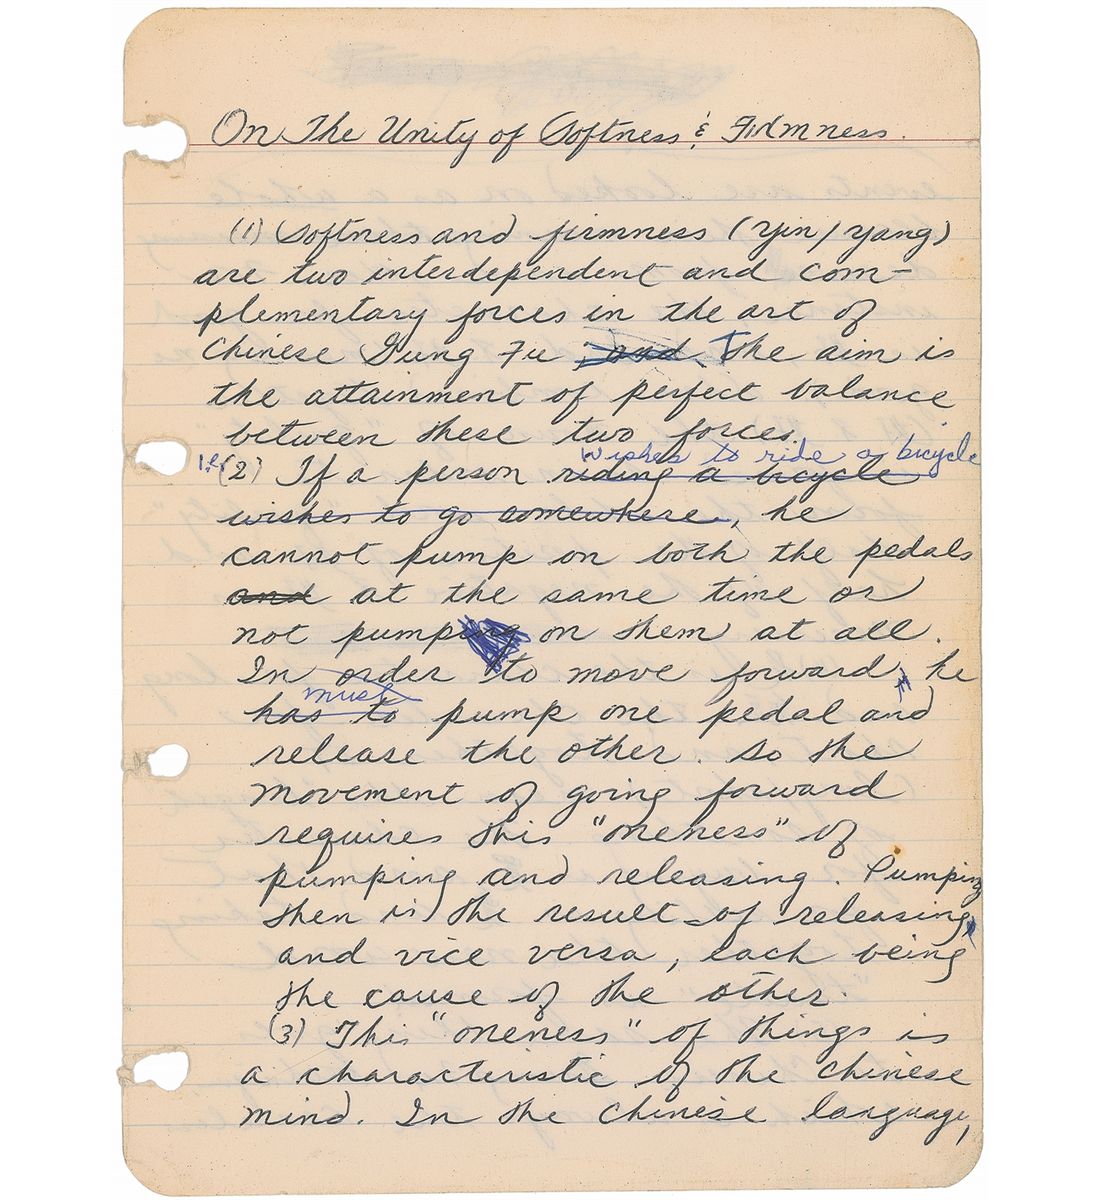 On The Unity of Softness & Firmness.
(1) Softness and firmness (yin/yang)
are two interdependent and com-
plementary forces in the art of
Chinese Gung Fu ; and The aim is
the attainment of perfect balance
between these two forces.
wishes to ride a bicycle
(2) If a person riding a bicycle
wishes to go somewhere, he
cannot pump on both the pedals
and at the same time or
not pumping on them at all.
In order to move forward, he
must
has to pump one pedal and
release the other. So the
movement of going forward
requires this "oneness" of
pumping and releasing. Pumping
then is the result of releasing,
and vice versa, each being
the cause of the other.
(3) This "oneness" of things is
a characteristic of the Chinese
mind. In the Chinese language,